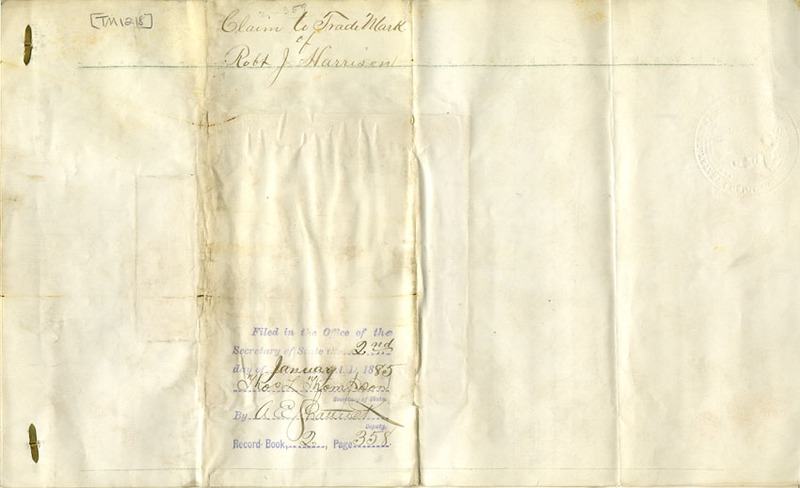 [TM1218]
358
Claim to Trade Mark
of
Robt J Harrison
Filed in the Office of the
Secretary of State the 2nd
day of January A.D. 1885
Thos L Thompson
Secretary of State.
By A. E.
Deputy.
Record Book, 2, Page 358